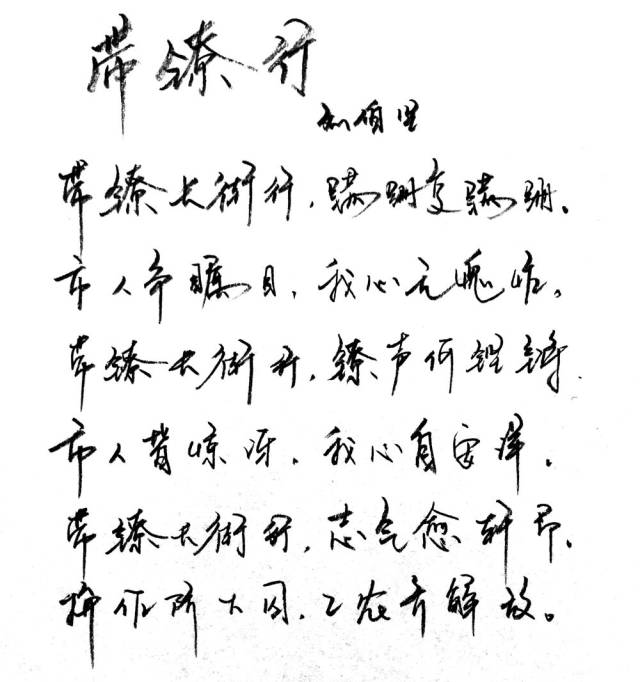 带镣行
刘伯坚
带镣长街行,蹒跚复蹒跚。
市人争瞩目,我心无愧怍。
带镣长街行,镣声何铿锵.
市人皆惊讶,我心自安详.
带镣长街行,志气愈轩昂.
拚作阶下囚,工农齐解放。